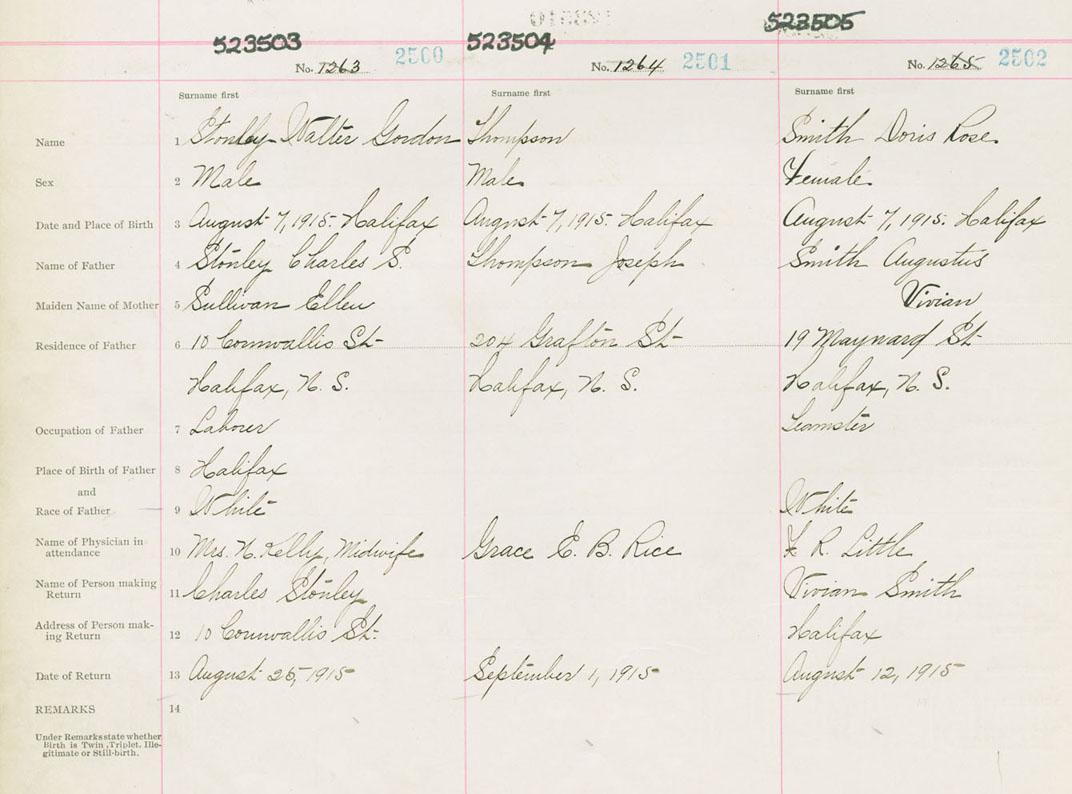 523503 523504 523505
No. 1263 2500 No. 1264 2501 No. 1265 2502
Surname first Surname first Surname first
Name 1 Stonley Walter Gordon Thompson Smith Doris Rose
Sex 2 Male Male Female
Date and Place of Birth 3 August 7, 1915. Halifax August 7, 1915. Halifax August 7, 1915. Halifax
Name of Father 4 Stonley Charles S. Thompson Joseph Smith Augustus
Maiden Name of Mother 5 Sullivan Ellen Vivian
Residence of Father 6 10 Cornwallis St. 204 Grafton St 19 Maynard St
Halifax, N. S. Halifax, N. S. Halifax, N. S.
Occupation of Father 7 Laborer Teamster
Place of Birth of Father 8 Halifax
and
Race of Father 9 White White
Name of Physician in
attendance 10 Mrs. N. Kelly, Midwife Grace E. B. Rice F. R. Little
Name of Person making
Return 11 Charles Stonley Vivian Smith
Address of Person mak-
ing Return 12 10 Cornwallis St. Halifax
Date of Return 13 August 25, 1915 September 1, 1915 August 12, 1915
REMARKS 14
Under Remarks state whether
Birth is Twin, Triplet, Ille-
gitimate or Still-birth.